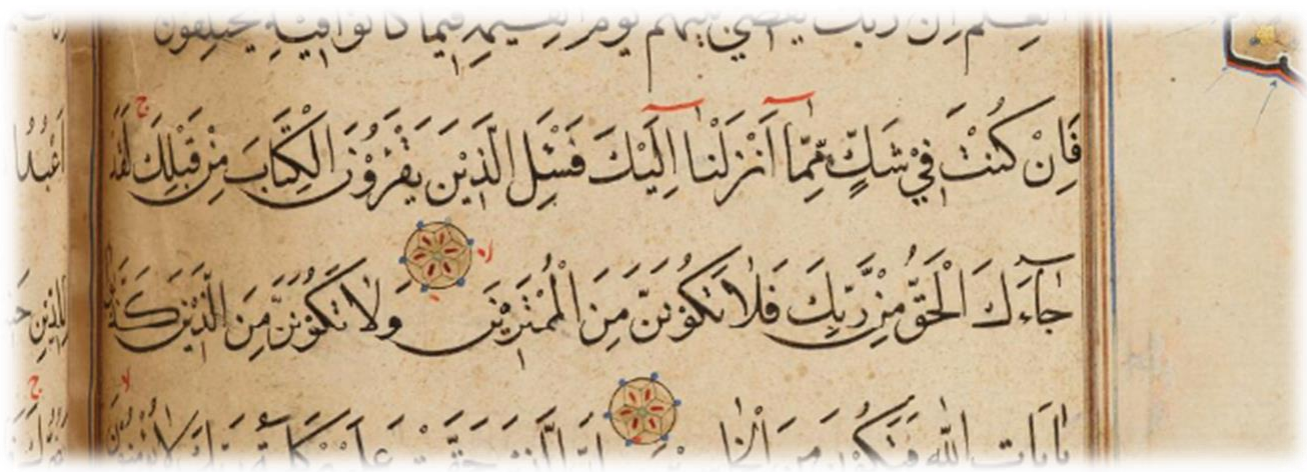 العلم ان ربك يقضي بينهم يوم القيمة فيما كانوا فيه يختلفون
فَاِنْ كُنْتَ فِيْ شَكٍّ مِّمَّا اَنْزَلْنَا اِلَيْكَ فَسْـَٔلِ الَّذِيْنَ يَقْرَؤُنَ الْكِتَابَ مِنْ قَبْلِكَ لَقَدْ
جَآءَكَ الْحَقُّ مِنْ رَّبِّكَ فَلَا تَكُوْنَنَّ مِنَ الْمُمْتَرِيْنَ وَلَا تَكُوْنَنَّ مِنَ الَّذِيْنَ كَذَّ
بايات الله فتكون من ان الذين حقت عليهم كلمة ربك لا يؤمنون